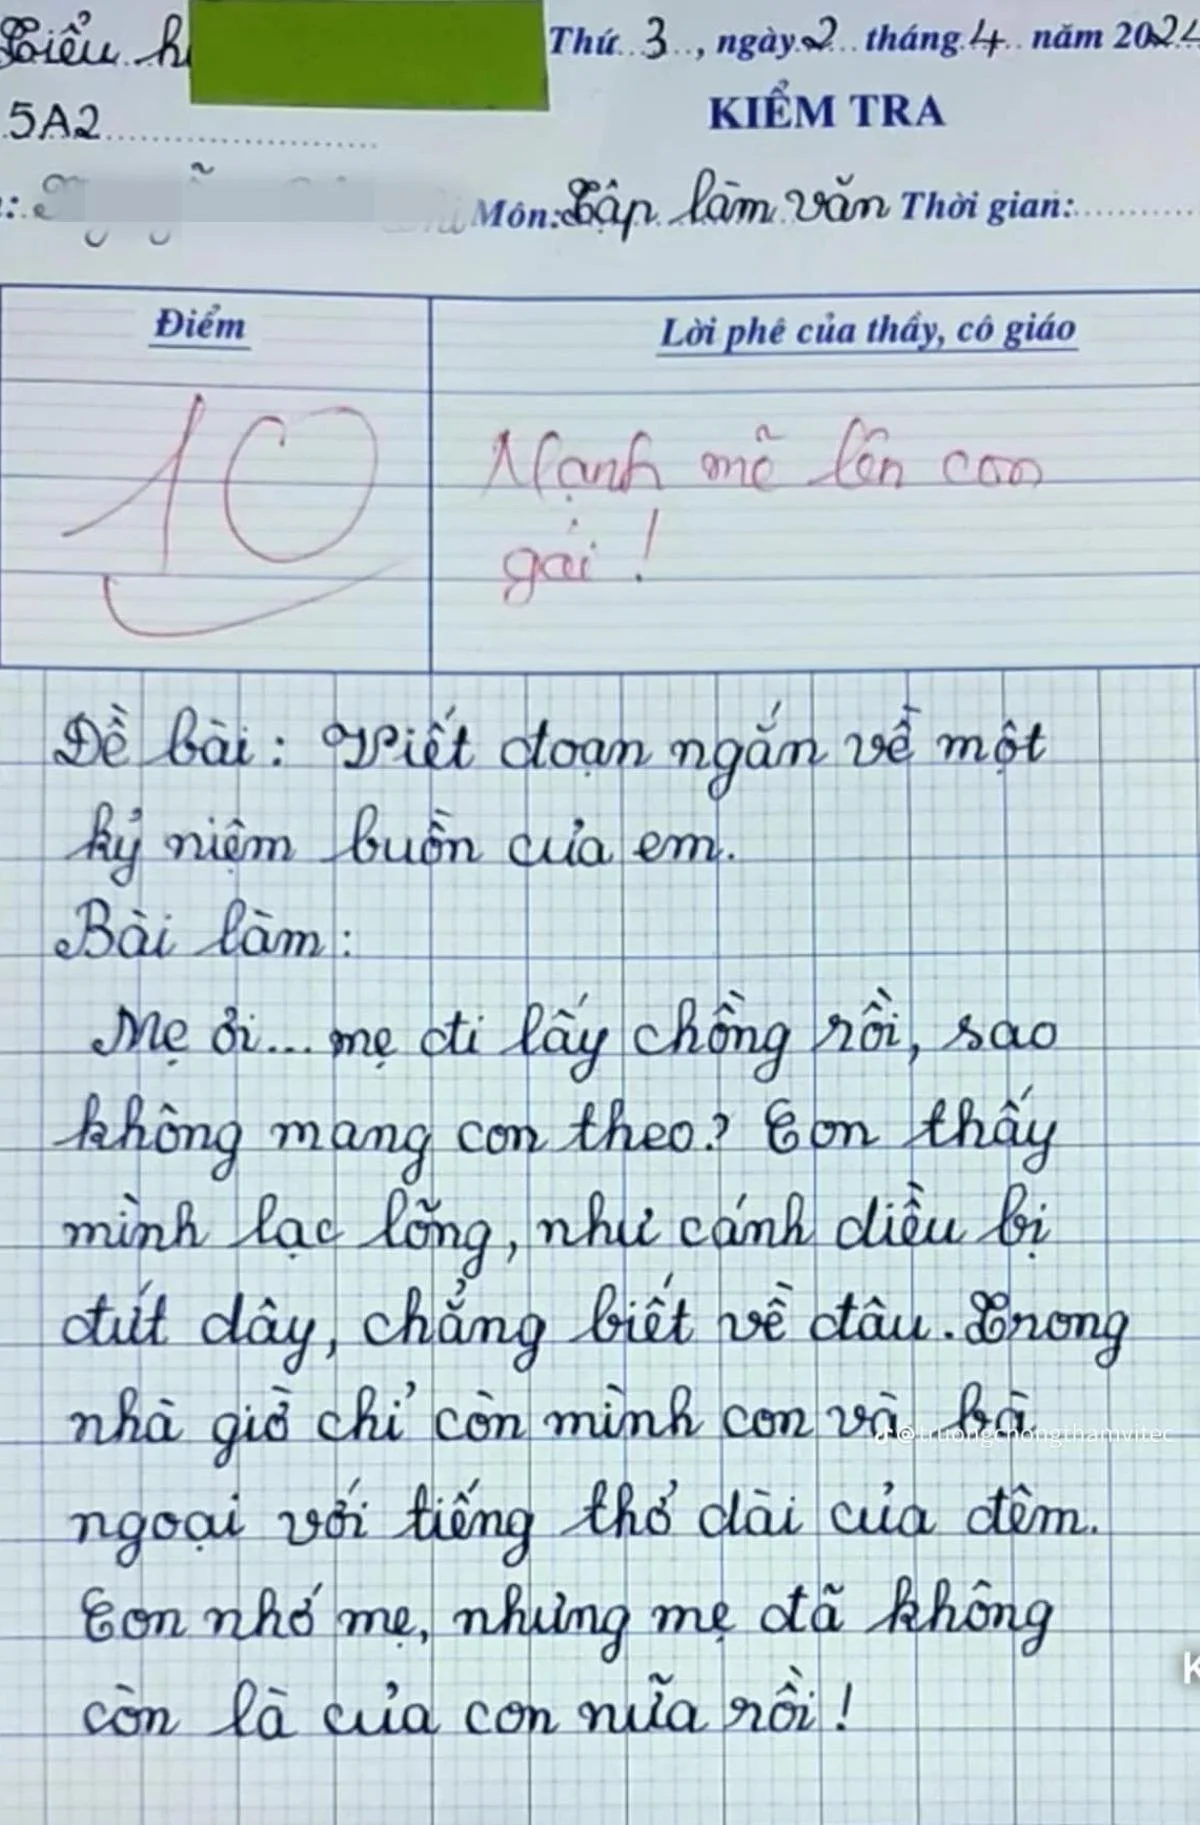 Tiểu h
Thứ 3, ngày 2 tháng 4 năm 2024
5A2
KIỂM TRA
Môn: Tập làm văn Thời gian:
Điểm
Lời phê của thầy, cô giáo
10
Mạnh mẽ lên con
gái!
Đề bài: Viết đoạn ngắn về một
kỷ niệm buồn của em.
Bài làm:
Mẹ ơi... mẹ đi lấy chồng rồi, sao
không mang con theo? Con thấy
mình lạc lõng, như cánh diều bị
đứt dây, chẳng biết về đâu. Trong
nhà giờ chỉ còn mình con và bà
@truongchongthamvitec
ngoại với tiếng thở dài của đêm.
Con nhớ mẹ, nhưng mẹ đã không
còn là của con nữa rồi!